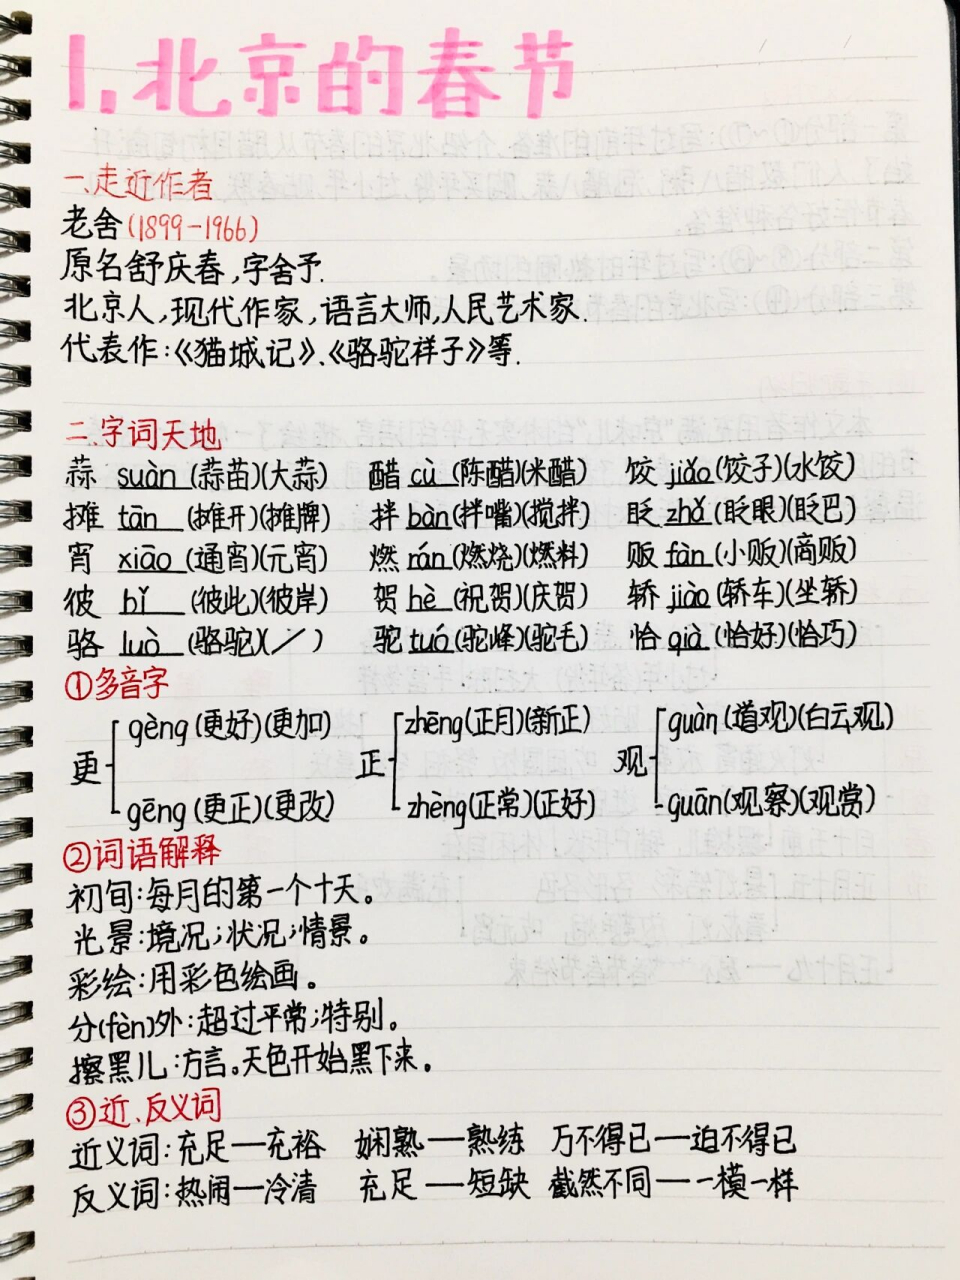 1,北京的春节
一.走近作者
老舍(1899-1966)
原名舒庆春,字舍予.
北京人,现代作家,语言大师,人民艺术家.
代表作:《猫城记》、《骆驼祥子》等.
二.字词天地
蒜 suàn (蒜苗)(大蒜) 醋 cù (陈醋)(米醋) 饺 jiǎo (饺子)(水饺)
摊 tān (摊开)(摊牌) 拌 bàn (拌嘴)(搅拌) 眨 zhǎ (眨眼)(眨巴)
宵 xiāo (通宵)(元宵) 燃 rán (燃烧)(燃料) 贩 fàn (小贩)(商贩)
彼 bǐ (彼此)(彼岸) 贺 hè (祝贺)(庆贺) 轿 jiào (轿车)(坐轿)
骆 luò (骆驼)(/) 驼 tuó (驼峰)(驼毛) 恰 qià (恰好)(恰巧)
①多音字
更 gèng (更好)(更加) 正 zhēng (正月)(新正) 观 guàn (道观)(白云观)
gēng (更正)(更改) zhèng (正常)(正好) guān (观察)(观赏)
②词语解释
初旬:每月的第一个十天。
光景:境况;状况;情景。
彩绘:用彩色绘画。
分(fèn)外:超过平常;特别。
擦黑儿:方言。天色开始黑下来。
③近、反义词
近义词:充足—充裕 娴熟—熟练 万不得已—迫不得已
反义词:热闹—冷清 充足—短缺 截然不同—一模一样